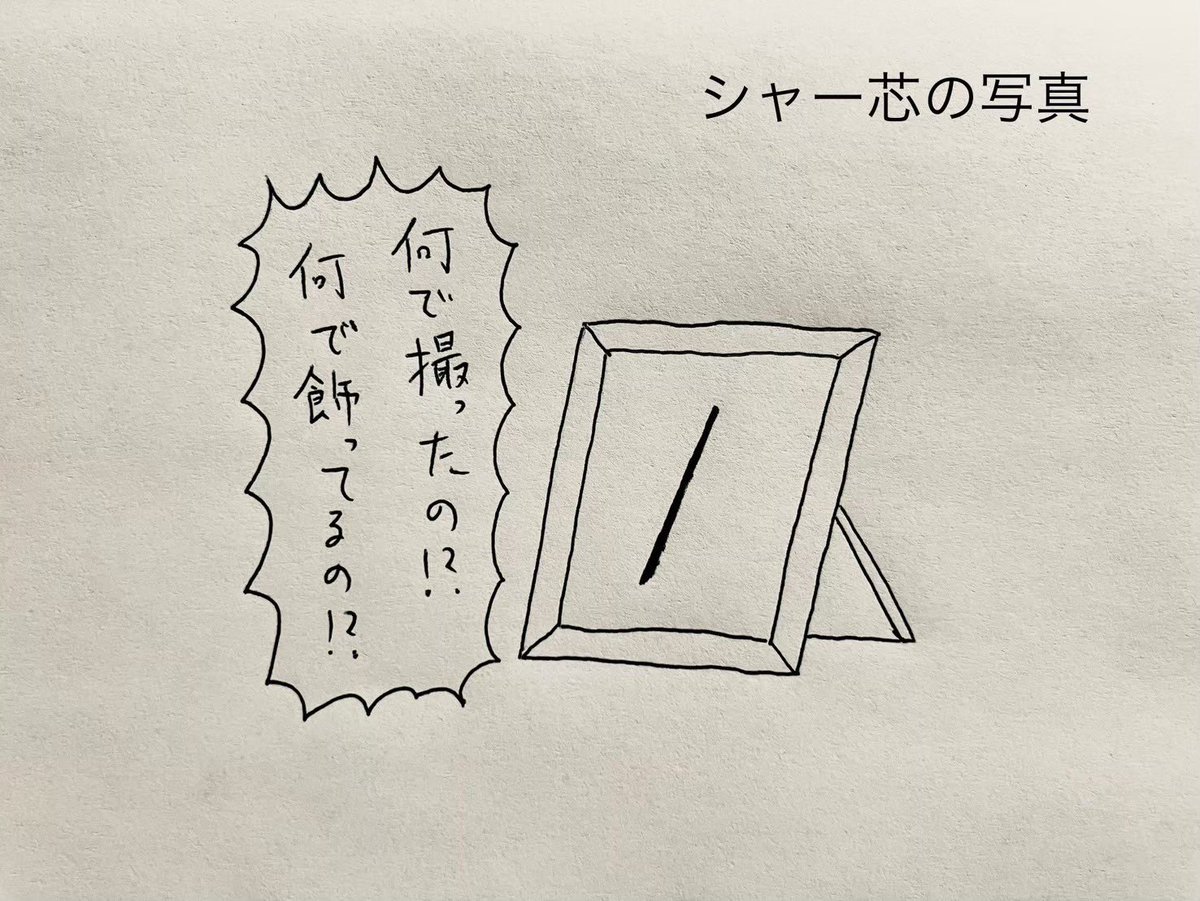 シャー芯の写真
何で撮ったの!?
何で飾ってるの!?